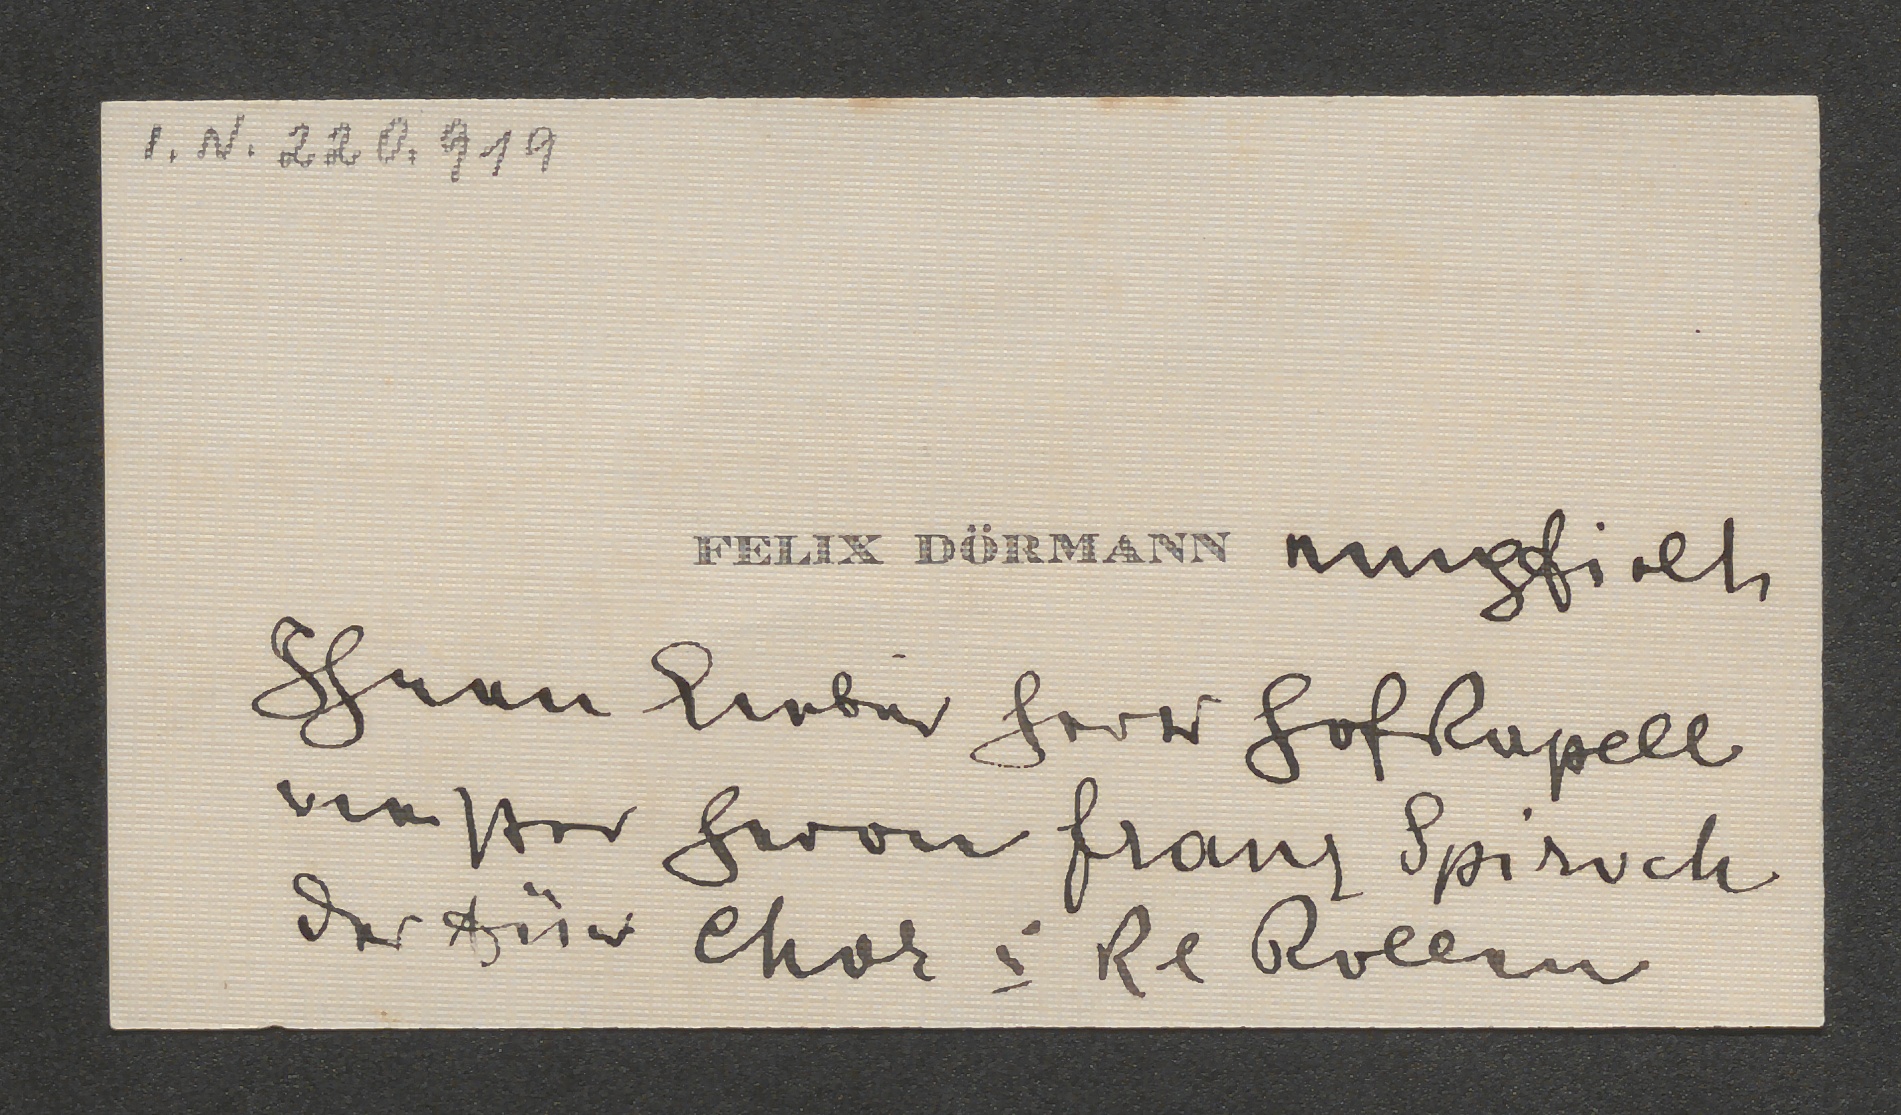 I. N. 220.919
FELIX DÖRMANN empfielt
Ihnen Lieber Herr Hofkapell
meister Herrn Franz Spiroch
der für Chor u Kl Rollen